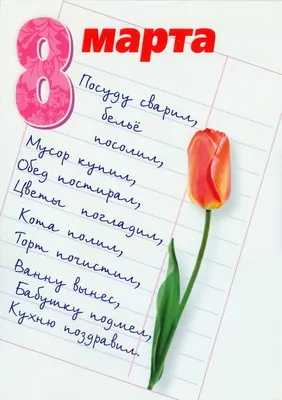 8 марта
Посуду сварил,
бельё
посолил,
Мусор купил,
Обед постирал,
Цветы погладил,
Кота полил,
Торт почистил,
Ванну вынес,
Бабушку подмел,
Кухню поздравил.